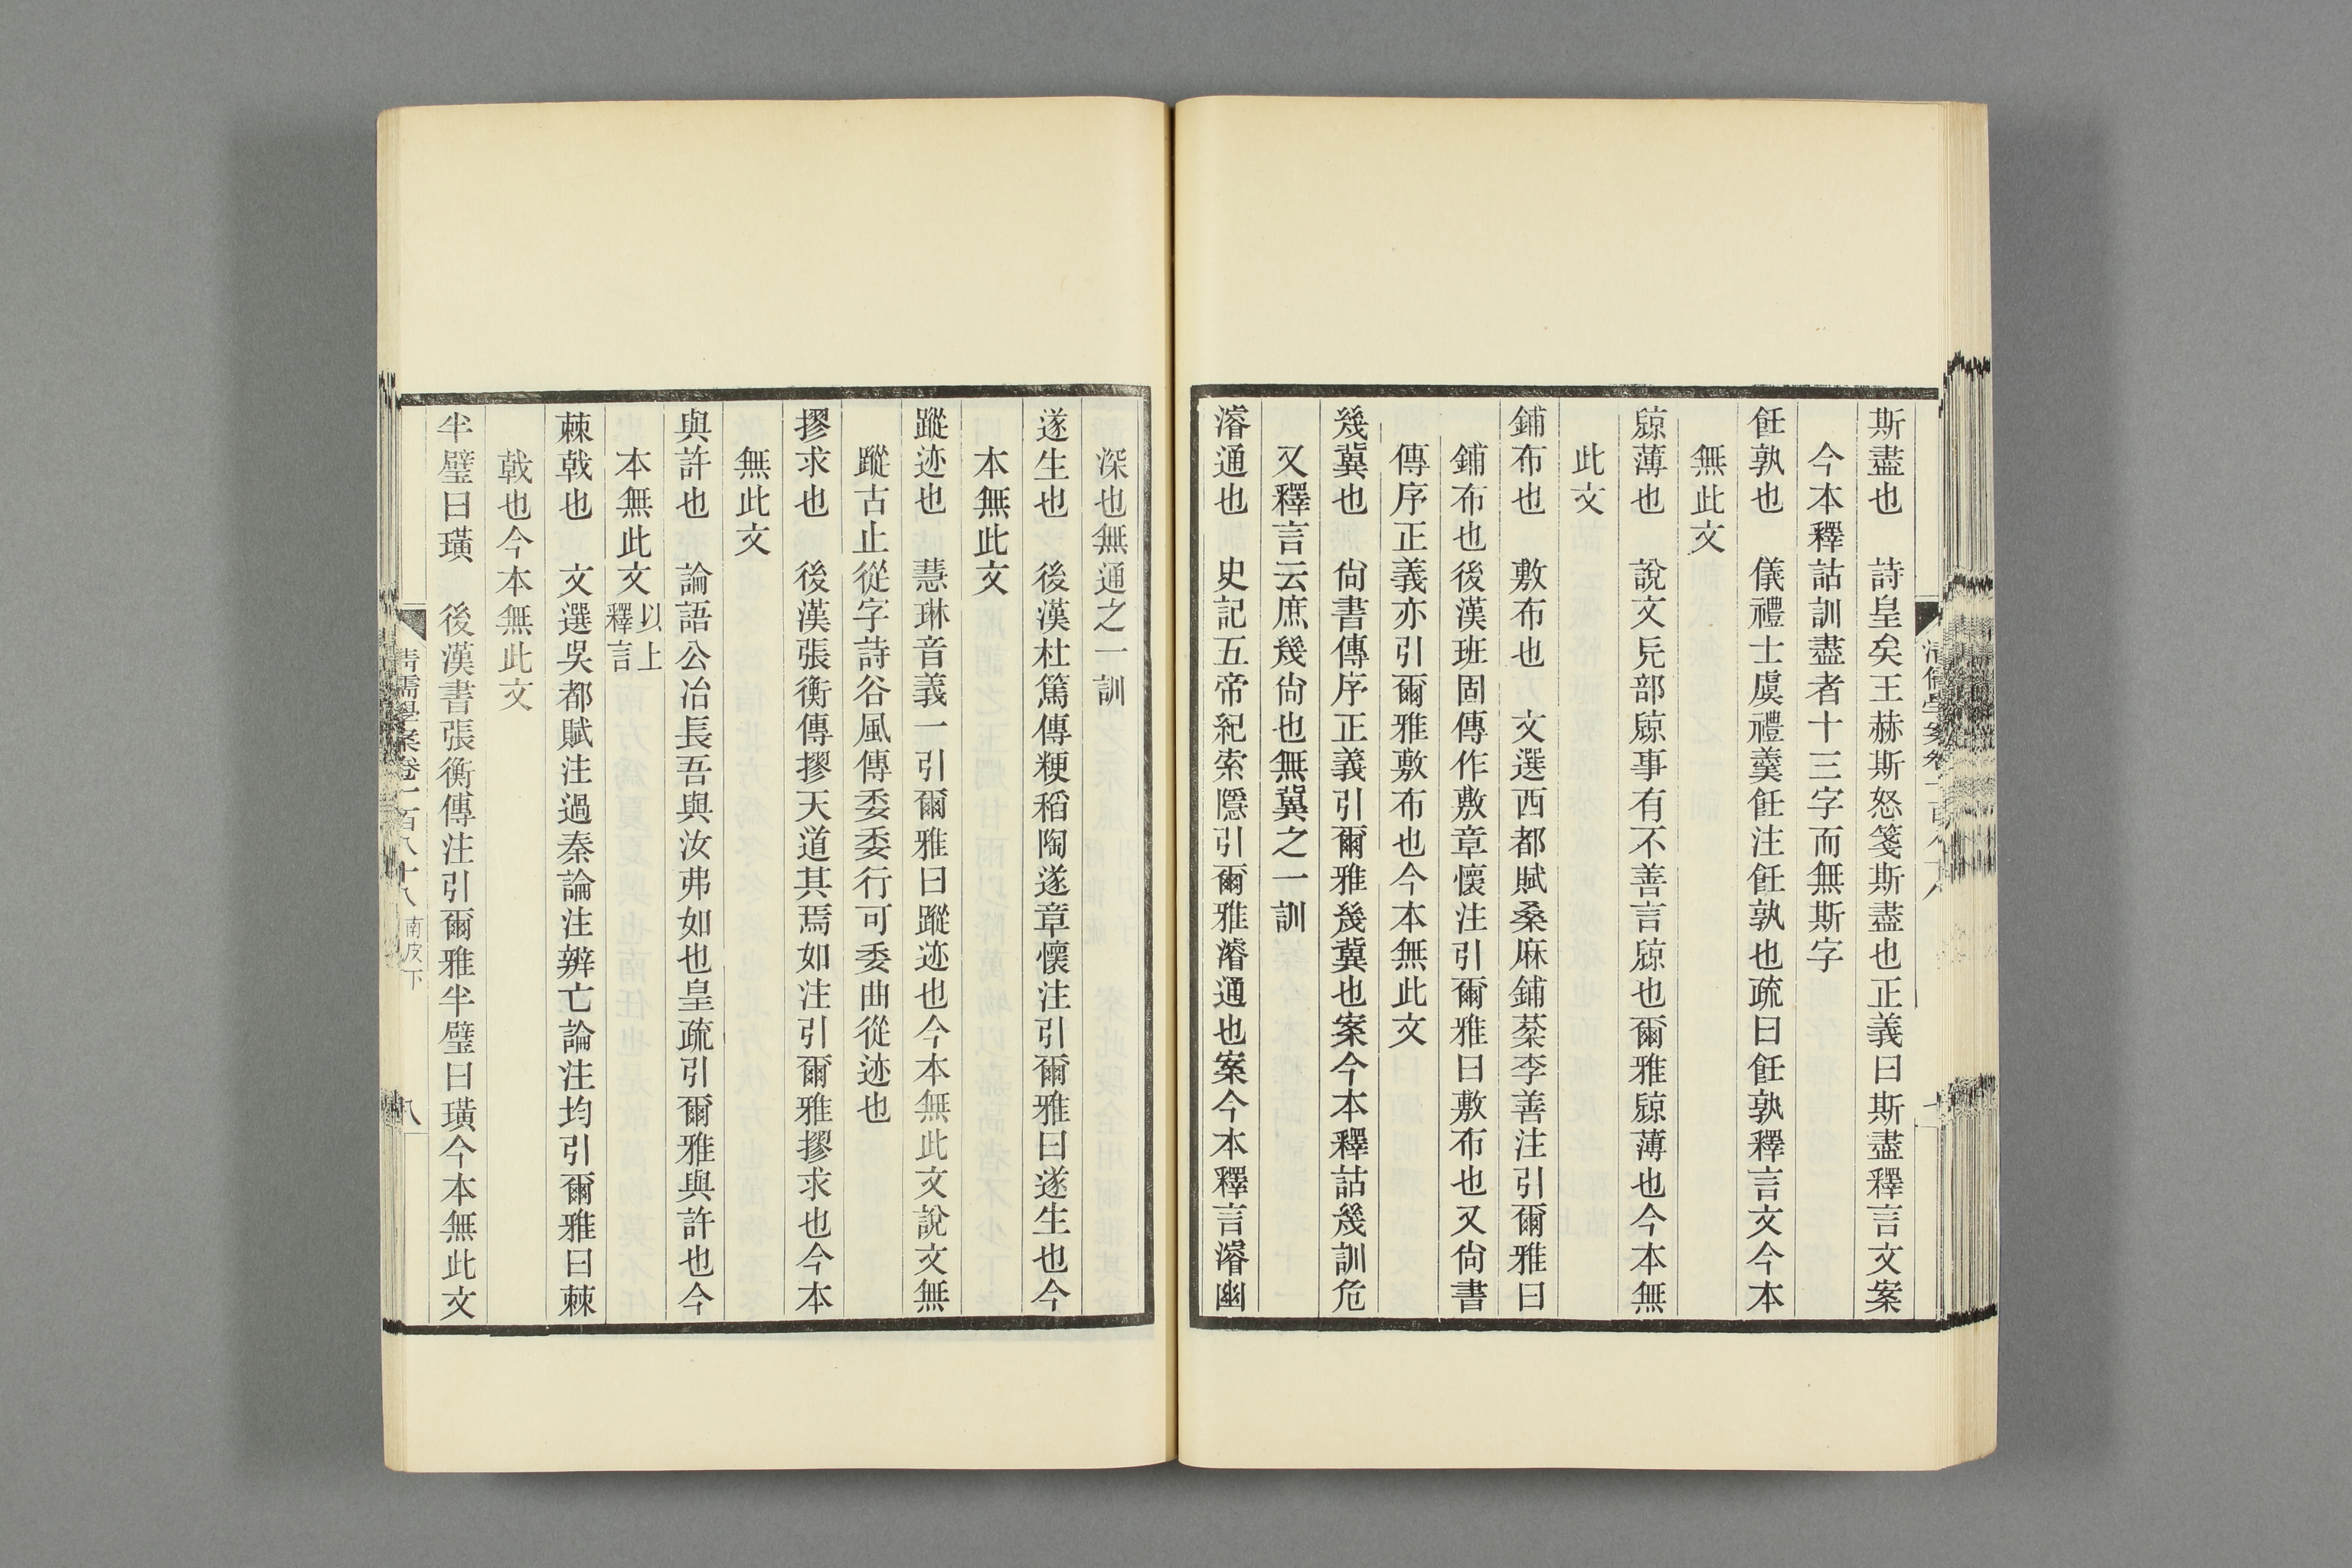 斯盡也　詩皇矣王赫斯怒箋斯盡也正義曰斯盡釋言文案
今本釋詁訓盡者十三字而無斯字
飪孰也　儀禮士虞禮羹飪注飪孰也疏曰飪孰釋言文今本
無此文
㹁薄也　說文旡部㹁事有不善言㹁也爾雅㹁薄也今本無
此文
鋪布也　敷布也　文選西都賦桑麻鋪棻李善注引爾雅曰
鋪布也後漢班固傳作敷章懷注引爾雅曰敷布也又尙書
傳序正義亦引爾雅敷布也今本無此文
幾冀也　尙書傳序正義引爾雅幾冀也案今本釋詁幾訓危
又釋言云庶幾尙也無冀之一訓
濬通也　史記五帝紀索隱引爾雅濬通也案今本釋言濬幽
深也無通之一訓
遂生也　後漢杜篤傳粳稻陶遂章懷注引爾雅曰遂生也今
本無此文
蹤迹也　慧琳音義一引爾雅曰蹤迹也今本無此文說文無
蹤古止從字詩谷風傳委委行可委曲從迹也
摎求也　後漢張衡傳摎天道其焉如注引爾雅摎求也今本
無此文
與許也　論語公冶長吾與汝弗如也皇疏引爾雅與許也今
本無此文以上釋言
棘戟也　文選吳都賦注過秦論注辨亡論注均引爾雅曰棘
戟也今本無此文
半璧曰璜　後漢書張衡傳注引爾雅半璧曰璜今本無此文
清儒學案卷一百八十八 南皮下 八